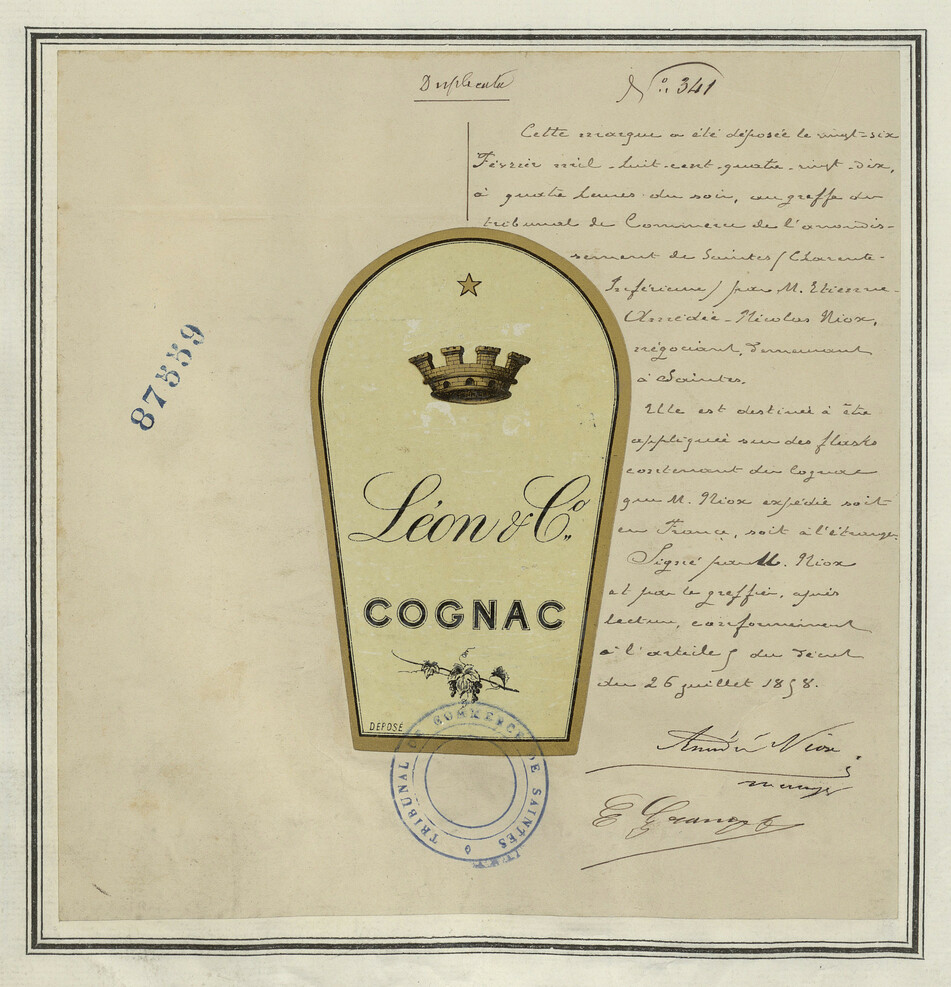 Duplicata
N° 341
Cette marque a été déposée le vingt-six
Février mil-huit-cent-quatre-vingt-dix,
à quatre heures du soir, au greffe du
tribunal de Commerce de l'arrondis-
sement de Saintes (Charente-
Inférieure) par M. Etienne-
Amédée-Nicolas Niox,
négociant, demeurant
à Saintes.
Elle est destinée à être
appliquée sur des flasks
contenant du Cognac
que M. Niox expédie soit
en France, soit à l'étranger.
Signé par M. Niox
et par le greffier, après
lecture, conformément
à l'article 5 du décret
du 26 juillet 1858.
Amédée Niox
87559
Léon & Co
COGNAC
DEPOSÉ
TRIBUNAL DE COMMERCE DE SAINTES